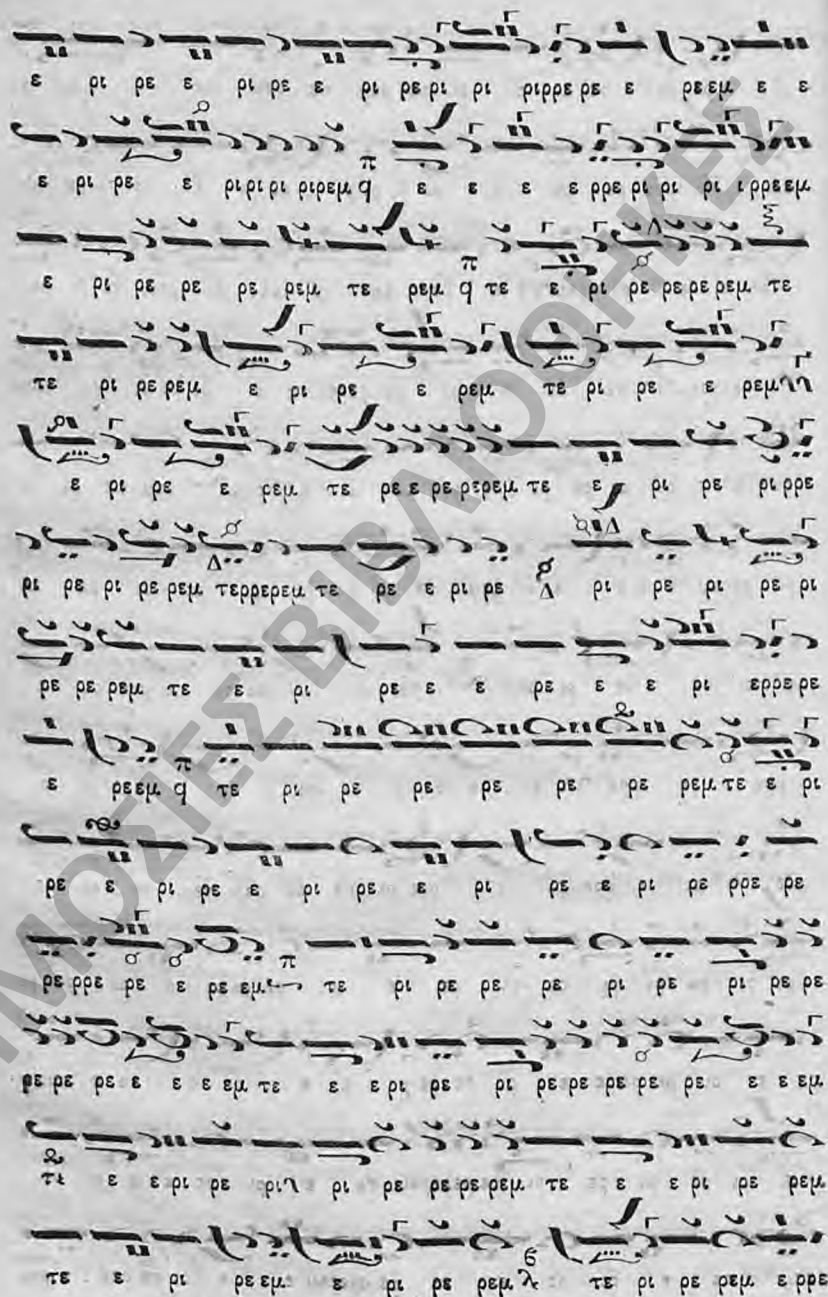 ε ρι ρε ε ρι ρε ε ρι ρε ρι ρι ριρρε ρε ε ρεεμ ε ε
ε ρι ρε ε ρι ρι ρι ριρεμ q ε ε ε ε ρρε ρι ρι ρι ι ρρεεμ
ε ρι ρε ρε ρε ρεμ τε ρεμ q τε ε ρι ρε ρε ρε ρεμ τε
τε ρι ρε ρεμ ε ρι ρε ε ρεμ τε ρι ρε ε ρεμ
ε ρι ρε ε ρεμ τε ρε ε ρε ρερεμ τε ε ρι ρε ρι ρρε
ρι ρε ρι ρε ρεμ τερρερεμ τε ρε ε ρι ρε Δ ρι ρε ρι ρε ρι
ρε ρε ρεμ τε ε ρι ρε ε ε ρε ε ε ρι ερρε ρε
ε ρεεμ q τε ρι ρε ρε ρε ρε ρεμ τε ε ρι
ρε ε ρι ρε ε ρι ρε ε ρι ρε ε ρι ρε ρρε ρε
ρε ρρε ρε ε ρε εμ τε ρι ρε ρε ρε ρι ρε ρι ρε ρε
ρε ρε ρε ε ε ε εμ τε ε ε ρι ρε ρι ρε ρε ρε ρε ρε ε ε εμ
τε ε ε ρι ρε ρι ρι ρε ρε ρε ρεμ τε ε ε ρι ρε ρεμ
τε ε ρι ρε εμ ε ρι ρε ρεμ λ τε ρι ρε ρεμ ε ρρε
ΜΟΣΙΕΣ ΒΙΒΛΙΟΘΗΚΕΣ